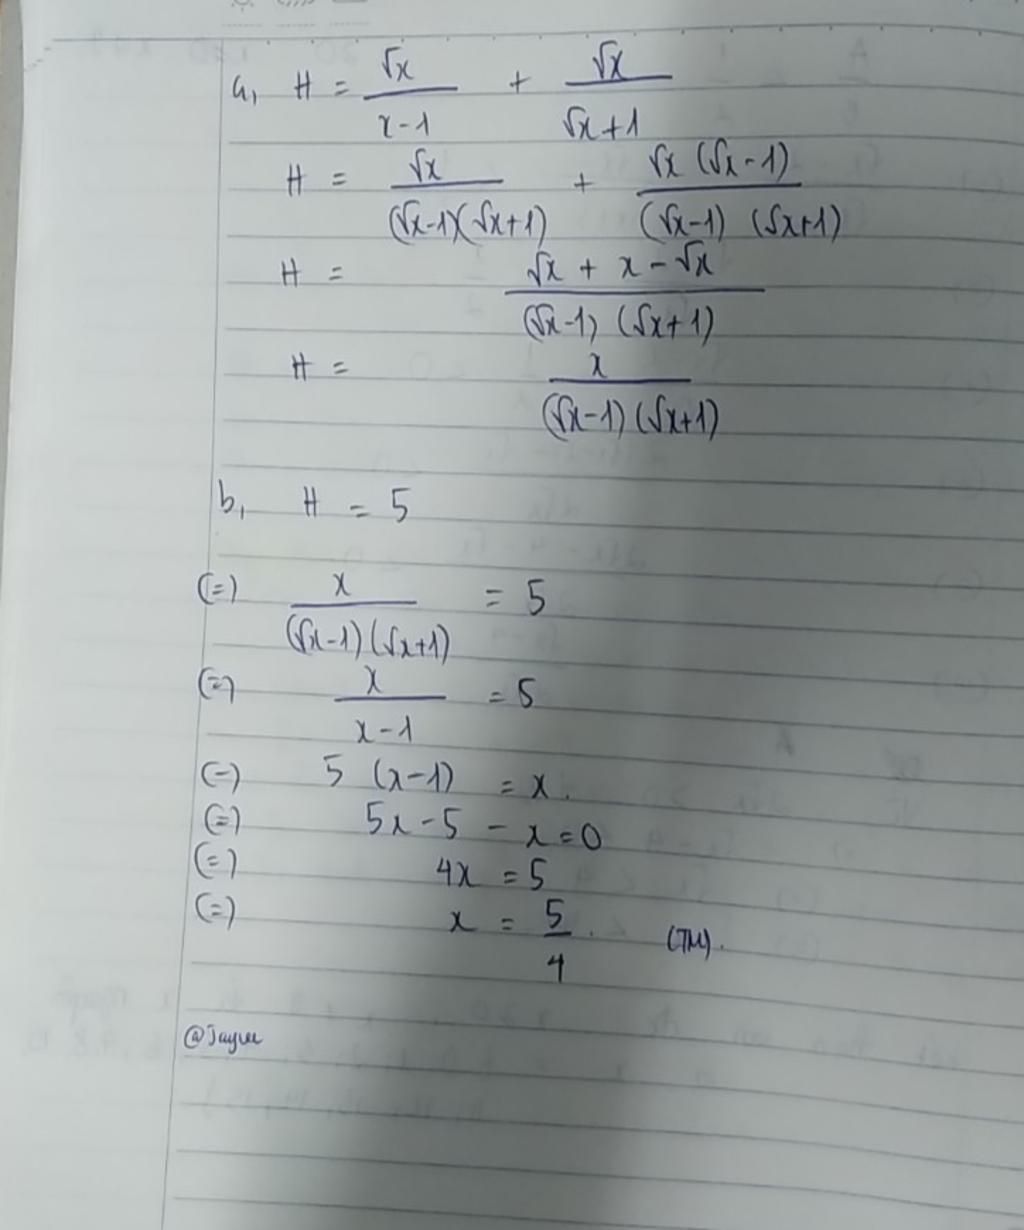 a, H = √x / x-1 + √x / √x+1
H = √x / (√x-1)(√x+1) + √x (√x-1) / (√x-1) (√x+1)
H = √x + x - √x / (√x-1) (√x+1)
H = x / (√x-1) (√x+1)
b, H = 5
(=) x / (√x-1) (√x+1) = 5
(=) x / x-1 = 5
(=) 5 (x-1) = x.
(=) 5x - 5 - x = 0
(=) 4x = 5
(=) x = 5 / 4. (TM).